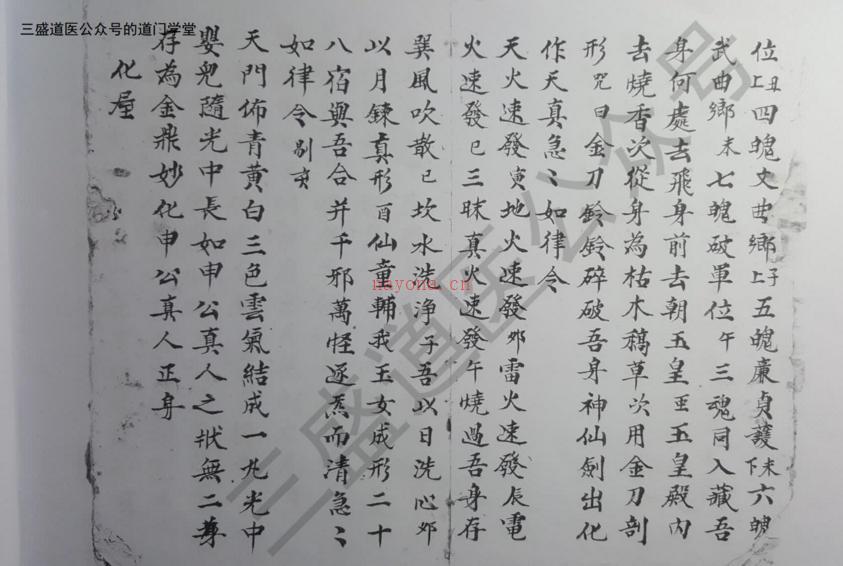 三盛道医公众号的道门学堂
位上丑四魄文曲鄉上子五魄廉貞護下未六魄
武曲鄉未七魄破軍位午三魂同入藏吾
身何處去飛身前去朝玉皇玉皇殿內
去燒香次從身為枯木稿草次用金刀剖
形咒曰金刀鈴鈴碎破吾身神仙劍出化
作天真急〻如律令
天火速發寅地火速發卯雷火速發辰電
火速發巳三昧真火速發午燒過吾身存
巽風吹散巳坎水洗淨子吾以日洗心卯
以月鍊真形酉仙童輔我玉女成形二十
八宿與吾合并千邪萬怪逐炁而清急〻
如律令剔亥
天門佈青黃白三色雲氣結成一丸光中
嬰兒隨光中長如申公真人之狀無二尊
存為金鼎妙化申公真人正身
化屋
nayona.cn
三盛道医公众号